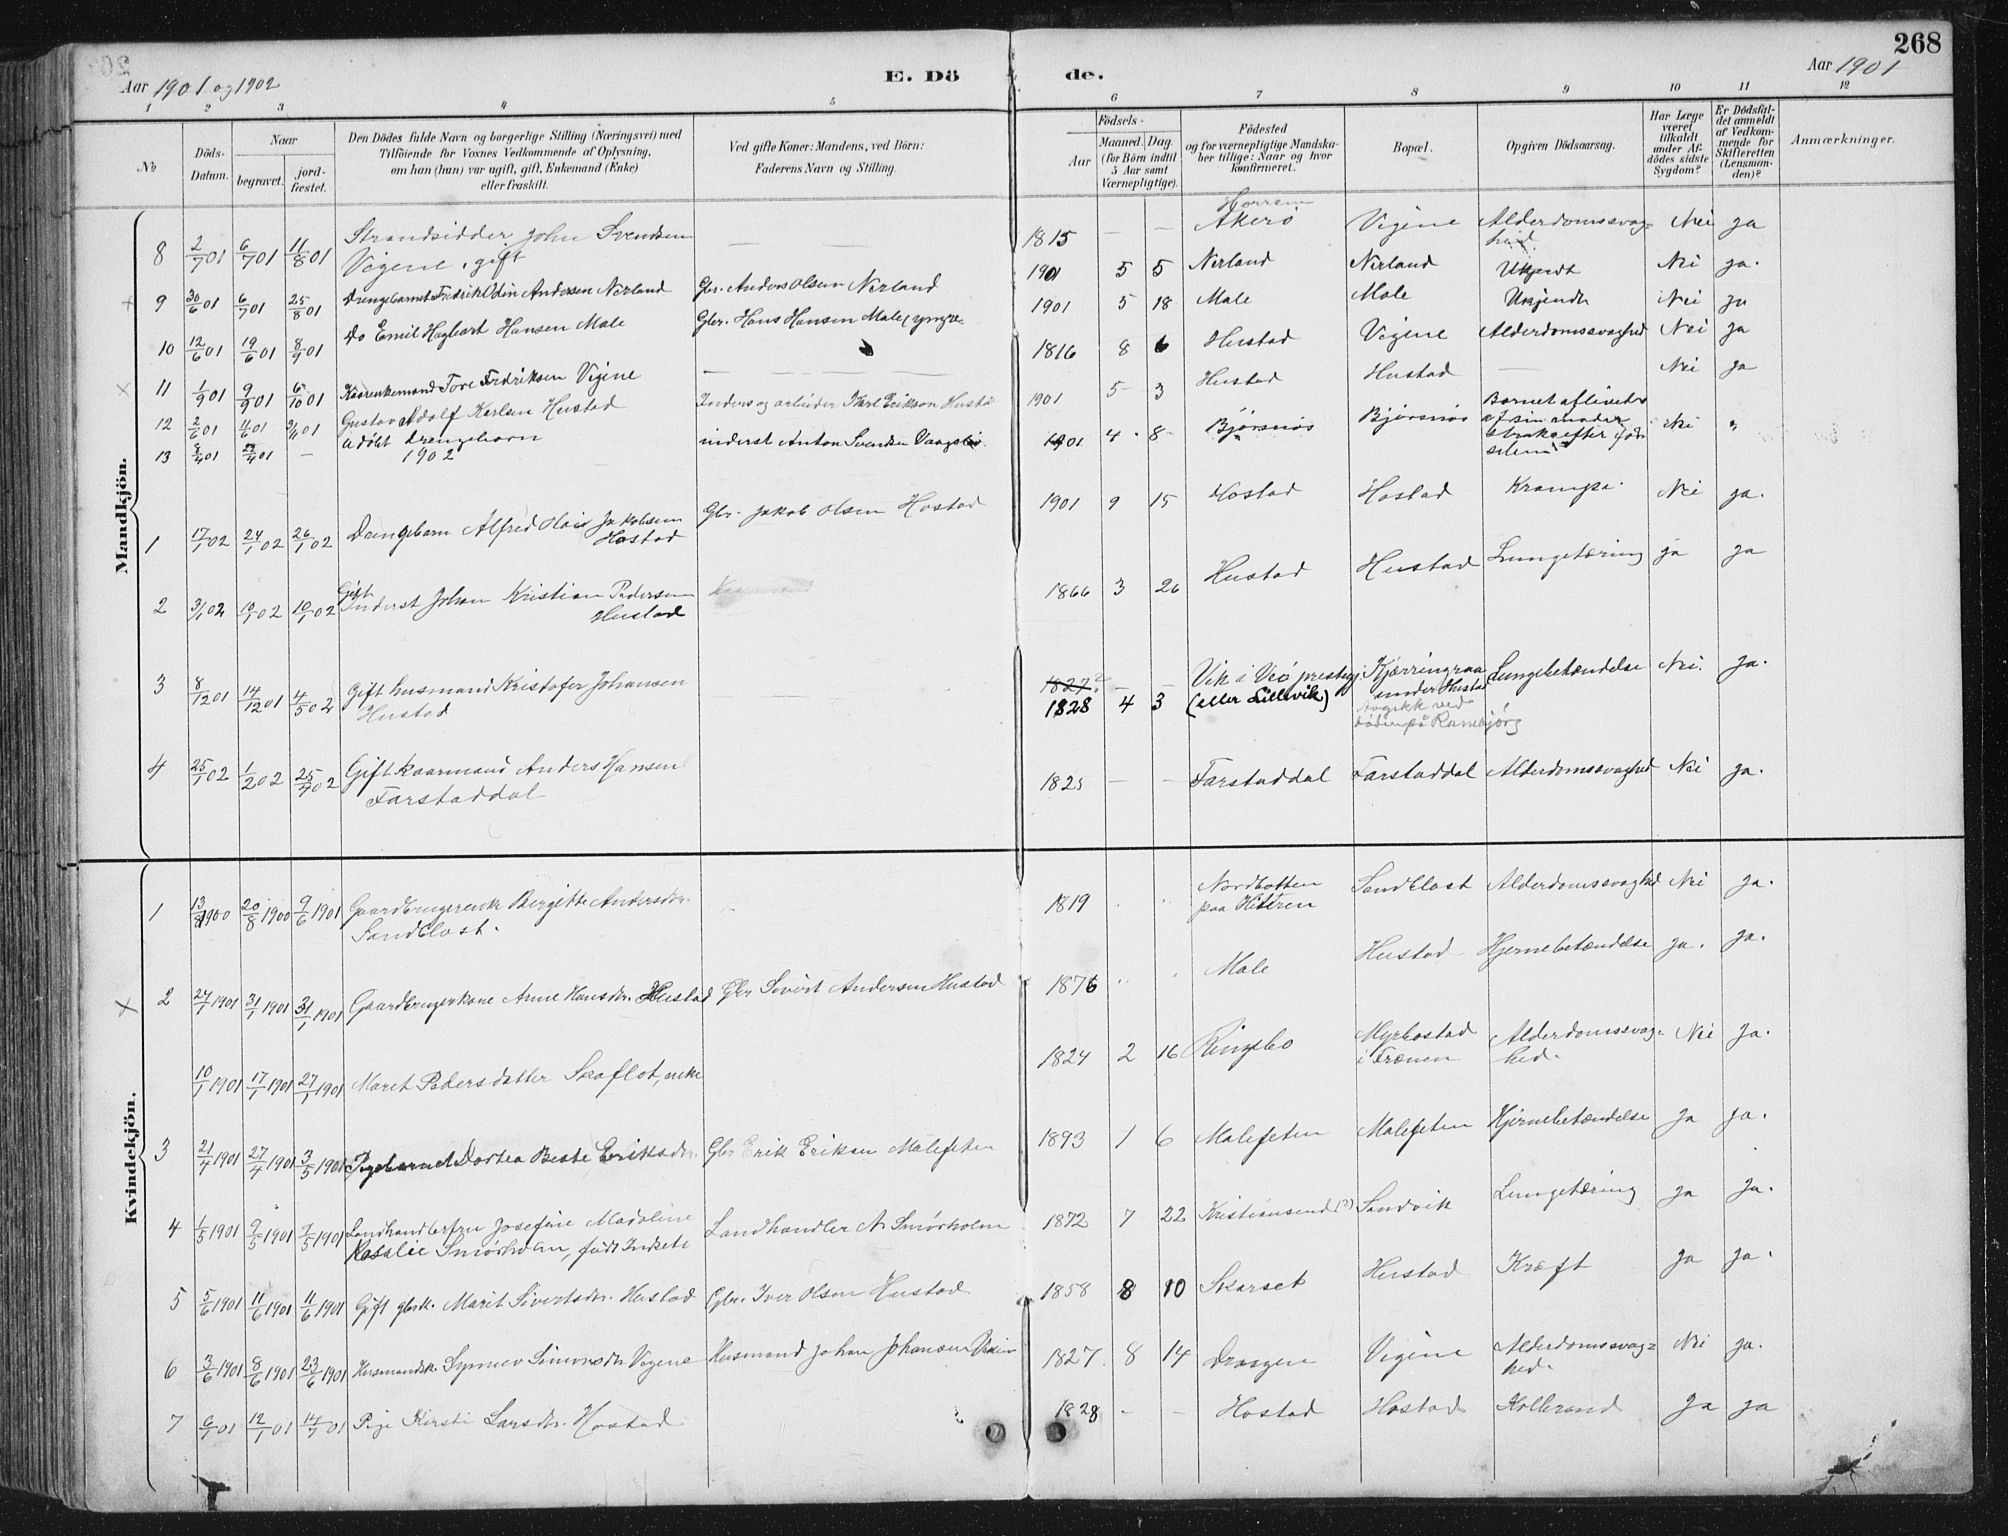 268
Aar 1901 og 1902
E. Dö
de.
Aar 1901
1 2 3 4 5 6 7 8 9 10 11 12
No
Döds-Datum.
Naar
begravet.
jord-fæstet.
Den Dödes fulde Navn og borgerlige Stilling (Næringsvei) med
Tilföiende for Voxnes Vedkommende af Oplysning,
om han (hun) var ugift, gift, Enkemand (Enke)
eller fraskilt.
Ved gifte Koner: Mandens, ved Börn:
Faderens Navn og Stilling.
Födsels-
Aar
Maaned. Dag.
(for Börn indtil
5 Aar samt
Værnepligtige).
Födested
og for værnepligtige Mandska-
ber tillige: Naar og hvor
konfirmeret.
Bopæl.
Opgiven Dödsaarsag.
Har Læge
været
tilkaldt
under Af-
dödes sidste
Sygdom?
Er Dödsfal-
det anmeldt
af Vedkom-
mende for
Skifteretten
(Lensman-
den)?
Anmærkninger.
Mandkjön.
8 2/7 01 6/7 01 11/8 01 Strandsidder John Svendsen — 1815 — — Horrem Akerö Vigene Alderdomssvag- Nei ja
Vigene, gift hed.
9 30/6 01 6/7 01 25/8 01 Drengebarnet Fredrik Odin Andersen Nerland Gbr. Anders Olsen Nerland 1901 5 5 Nerland Nerland Ukjendt Nei ja.
10 12/6 01 19/6 01 8/9 01 Do Emil Hagbart Hansen Male Gbr. Hans Hansen Male, yngre 1901 5 18 Male Male Ukjendt Nei ja
11 1/9 01 9/9 01 6/10 01 Kaarenkemand Tore Fredriksen Vigene — 1816 8 6 Hustad Vigene Alderdomssvaghed Nei ja
12 2/6 01 4/6 01 9/11 01 Gustav Adolf Karlsen Hustad Inderst og arbeider Karl Erikson Hustad 1901 5 3 Hustad Hustad — Nei ja
13 8/4 01 23/4 01 — udöbt Drengebarn inderst Anton Svendsen 1901 4 8 Bjørsnös Bjørsnös Barnet aflivedes
af sin moder
strax efter föd-
selen Nei "
1902
1 17/1 02 24/1 02 26/1 02 Drengebarn Alfred Jakobsen Gbr. Jakob Olsen Hostad 1901 9 15 Hostad Hostad Krampe. Nei ja.
Hostad
2 3/1 02 10/1 02 10/1 02 Gift Inderst Johan Kristian Pedersen 1866 3 26 Hustad Hustad Lungetæring ja ja
Hustad
3 8/12 01 14/12 01 4/5 02 Gift husmand Kristofer Johansen — 1827? — Vik i Veö prestegj. Kjærringraa Lungebetændelse Nei. ja.
Hustad 1828 4 3 (eller Lillevik) under Hustad
avgikk ved
döden på
4 25/1 02 1/2 02 25/4 02 Gift kaarmand Anders Hansen 1825 — — Farstaddal Farstaddal Alderdomssvaghed Nei ja.
Farstaddal
Kvindekjön.
1 13/8 1900 20/8 1900 9/6 1901 Gaardbrugerenke Birgitte Andersdtr. 1819 Nordbotten Sandblast Alderdomssvaghed Nei ja.
Sandblast. paa Hitteren
2 24/1 1901 31/1 1901 31/1 1901 Gaardbrugerkone Anne Hansdtr. Hustad Gbr Sivert Andersen Hustad 1876 Male Hustad Hjernebetændelse ja. ja.
10/1 1901 17/1 1901 27/1 1901 Marit Pedersdatter Skaflot, enke 1824 2 16 Ringebo Myrbostad Alderdomssvag- Nei ja.
i Frænen hed.
3 21/4 1901 27/4 1901 3/5 1901 Pigebarnet Dortea Beate Eriksdtr. Gbr Erik Eriksen Malefeten 1893 1 6 Malefeten Malefeten Hjernebetændelse ja ja.
4 1/5 1901 9/5 1901 9/5 1901 Landhandlerfru Josefine Madaline Landhandler A. Smörholm 1872 7 22 Kristiansund (?) Sandvik Lungetæring ja ja.
Rosalie Smörholm, född
5 5/6 1901 11/6 1901 11/6 1901 Gift gbrk. Marit Sivertsdtr. Hustad Gbr. Iver Olsen Hustad 1858 8 10 Skarset Hustad Kræft ja ja.
6 3/6 1901 8/6 1901 23/6 1901 Husmandsk. Synnev Simonsdtr Vigene Husmand Johan Johansen 1827. 8 14 Draagen Vigene Alderdomssvag- Nei ja.
hed.
7 6/1 01 12/1 01 14/7 01 Pige Kirsti Larsdtr. Hostad 1828 — — Hostad Hostad Koldbrand ja ja